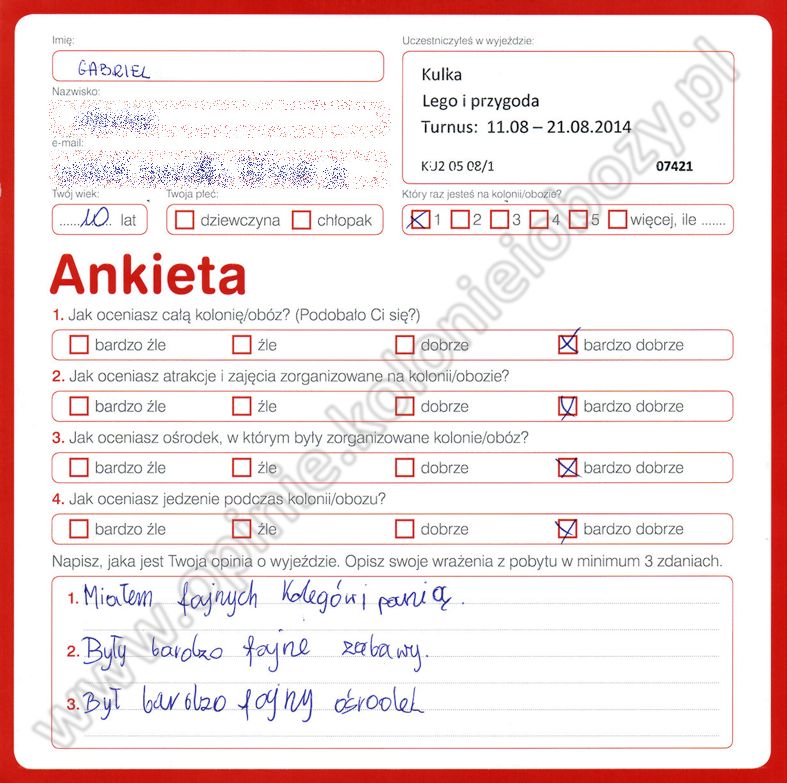 Imię:
GABRIEL
Nazwisko:
e-mail:
Uczestniczyłeś w wyjeździe:
Kulka
Lego i przygoda
Turnus: 11.08 – 21.08.2014
KU2 05 08/1 07421
Twój wiek:
......10.. lat
Twoja płeć:
dziewczyna chłopak
Który raz jesteś na kolonii/obozie?
1 2 3 4 5 więcej, ile .......
Ankieta
1. Jak oceniasz całą kolonię/obóz? (Podobało Ci się?)
bardzo źle źle dobrze bardzo dobrze
2. Jak oceniasz atrakcje i zajęcia zorganizowane na kolonii/obozie?
bardzo źle źle dobrze bardzo dobrze
3. Jak oceniasz ośrodek, w którym były zorganizowane kolonie/obóz?
bardzo źle źle dobrze bardzo dobrze
4. Jak oceniasz jedzenie podczas kolonii/obozu?
bardzo źle źle dobrze bardzo dobrze
Napisz, jaka jest Twoja opinia o wyjeździe. Opisz swoje wrażenia z pobytu w minimum 3 zdaniach.
1. Miałem fajnych kolegów i panią.
2. Były bardzo fajne zabawy.
3. Był bardzo fajny ośrodek
www.opinie.kolonieiobozy.pl